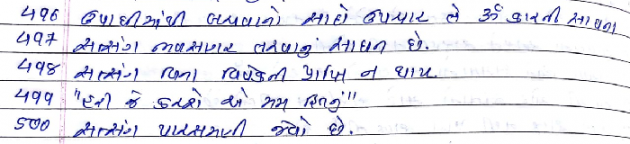 496 ઉપાધીમાંથી બચવાનો સાદો ઉપચાર છે ૐ કારની સાધના
497 સત્સંગ ભવસાગર તરવાનું સાધન છે.
498 સત્સંગ વિના વિવેકની પ્રાપ્તિ ન થાય
499 "હરી જે કરશે એ મમ હિતનું"
500 સત્સંગ પારસમણી જેવો છે.